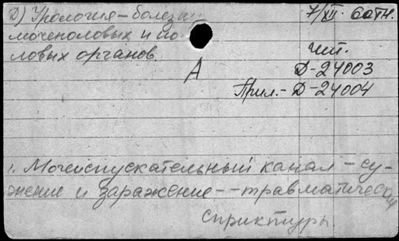 2) Урология — болезни
мочеполовых и по-
ловых органов.
7/XII. 60 г.н.
чит.
А
Д-24003
Прил.- Д-24004
1. Мочеиспускательный канал - су-
жение и заражение - - травматическ
стриктуры